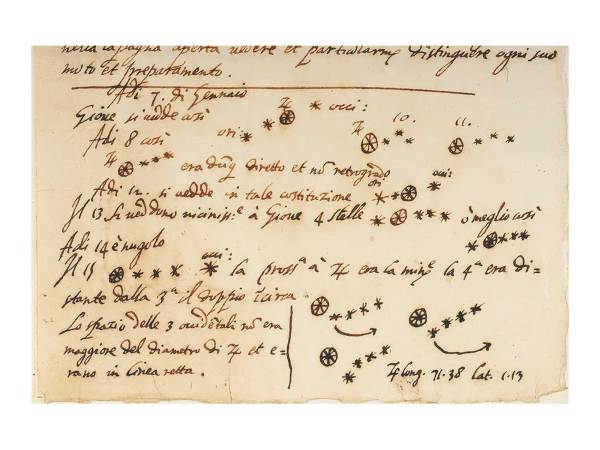 nella campagna aperta vedere et particularmē distinguere ogni suo
moto et preparamento.
Adi 7. di Gennaio
Gioue si vedde così ♃ occi:
Adi 8 così ori: 10. 11.
♃ era dūq̨ diretto et nō retrogrado
ori occi:
Adi 12. si vedde in tale costituzione
Il 13 si veddono vicinis.e à Gioue 4 stelle ò meglio così
Adi 14 è nugolo
Il 15 occi: la pross.a à ♃ era la min.e la 4.a era di=
stante dalla 3.a il doppio i circa
Lo spazio delle 3 occidētali nō era
maggiore del diametro di ♃ et e=
rano in linea retta.
♃ long. 71.38 Lat. 1.13